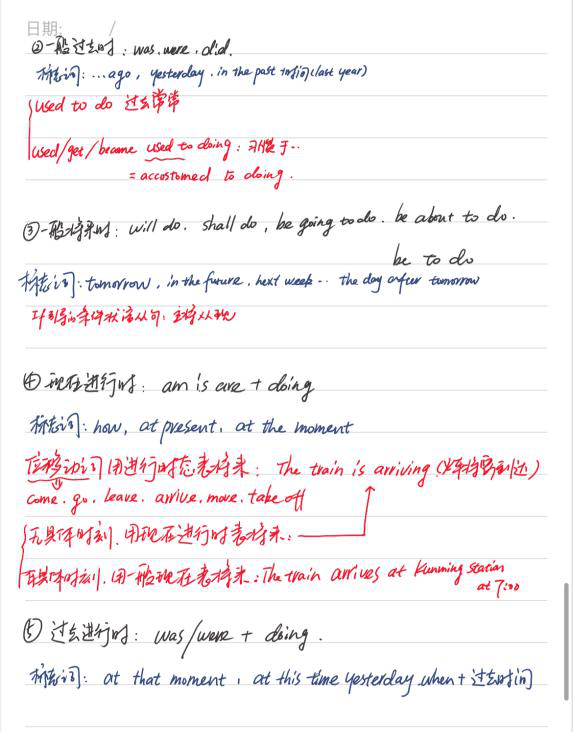 日期: /
②一般过去时：was. were. did.
标志词：...ago, yesterday, in the past 时间(last year)
used to do 过去常常
used/get/became used to doing：习惯于..
= accostomed to doing.
③一般将来时：will do. shall do, be going to do. be about to do.
be to do
标志词：tomorrow, in the future, next week... the day after tomorrow
If引导的条件状语从句：主将从现
④现在进行时：am is are + doing
标志词：now, at present, at the moment
位移动词用进行时态表将来：The train is arriving (火车将要到达)
come. go. leave. arrive. move. take off
无具体时刻.用现在进行时表将来：
有具体时刻.用一般现在表将来：The train arrives at Kunming Station
at 7:00
⑤过去进行时：was/were + doing.
标志词：at that moment, at this time yesterday when + 过去时间